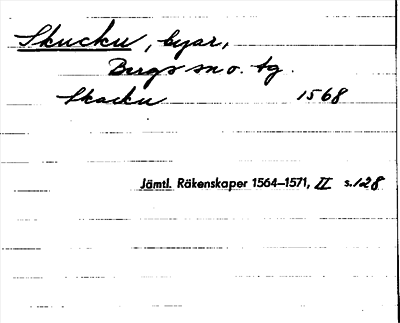 Skucku, byar,
Bergs sn o. tg.
Skacku 1568
Jämtl. Räkenskaper 1564–1571, II s. 128